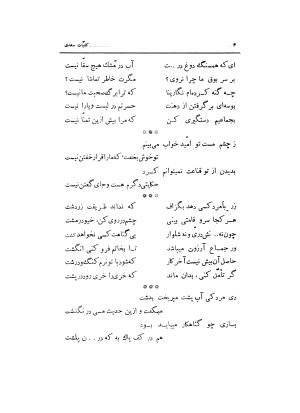 ۴ .......... کلیات سعدی
ای که همسنگه دوغ در ...ت
آب در مشك هیچ سقا نیست
بر سر بوقی ما چرا نروی؟
مگرت خاطر تماشا نیست؟
که ترا بر گك صحبت ما نیست؟
بوسه‌ای بر گرفتن از دهنت
حسرتم در لبست ویارا نیست
بجماعیم دستگیری کن
که مرا بیش ازین تمنا نیست
***
ز چشم مست تو امید خواب می‌بینم
تو خوش بخفت؛ که ما را قرار خفتن نیست
بدیدن از تو قناعت نمیتوانم کرد
حکایتی دگرم هست و جای گفتن نیست
***
زر بامرد کسی دهد بگزاف
که نداند طریقت زردشت
هر کجا سرو قامتی بینی
چشم در روی کن، خیو در مشت
بی گناهت کسی نخواهد کشت
در جماع آرزوت میباشد
تا بخاتم فرو کنی انگشت
حاصل آن بیش نیست آخر کار
که شود با تو نرم كنگ درشت
گر تأمل کنی، بدان ماند
که خری را خری دود در پشت
***
دی مرد کی آب پشت میریخت بدشت
میگفت و ازین حدیث می در نگذشت
باری چو گناهکار میباید بود
هم در كف پاك به که در ...ن پلشت